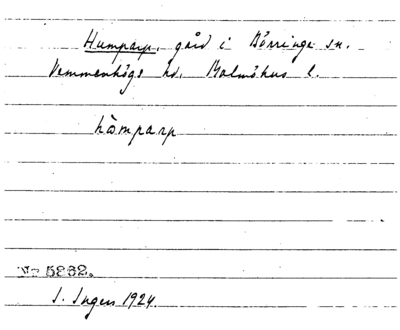 Humparp, gård i Börringe sn.
Vemmenhögs hd. Malmöhus l.
hòmparp
No 5262.
I. Ingers 1924.